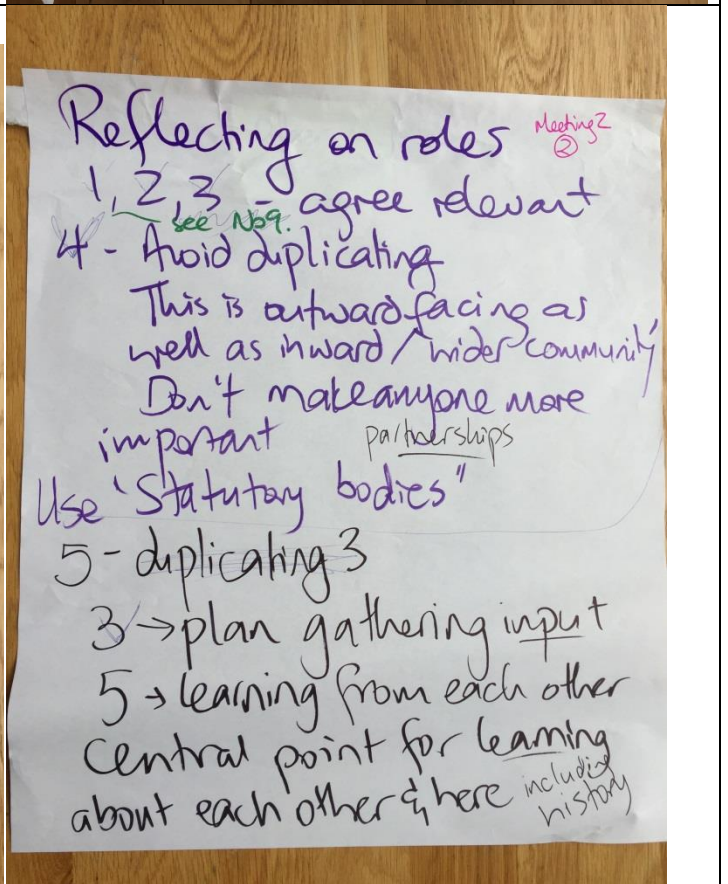 Reflecting on roles
Meeting 2
②
1, 2, 3 - agree relevant
see No9.
4 - Avoid duplicating
This is outward facing as
well as inward / wider community
Don't make anyone more
important
partnerships
Use "Statutory bodies"
5 - duplicating 3
3 → plan gathering input
5 → learning from each other
central point for learning
about each other & here
including
history